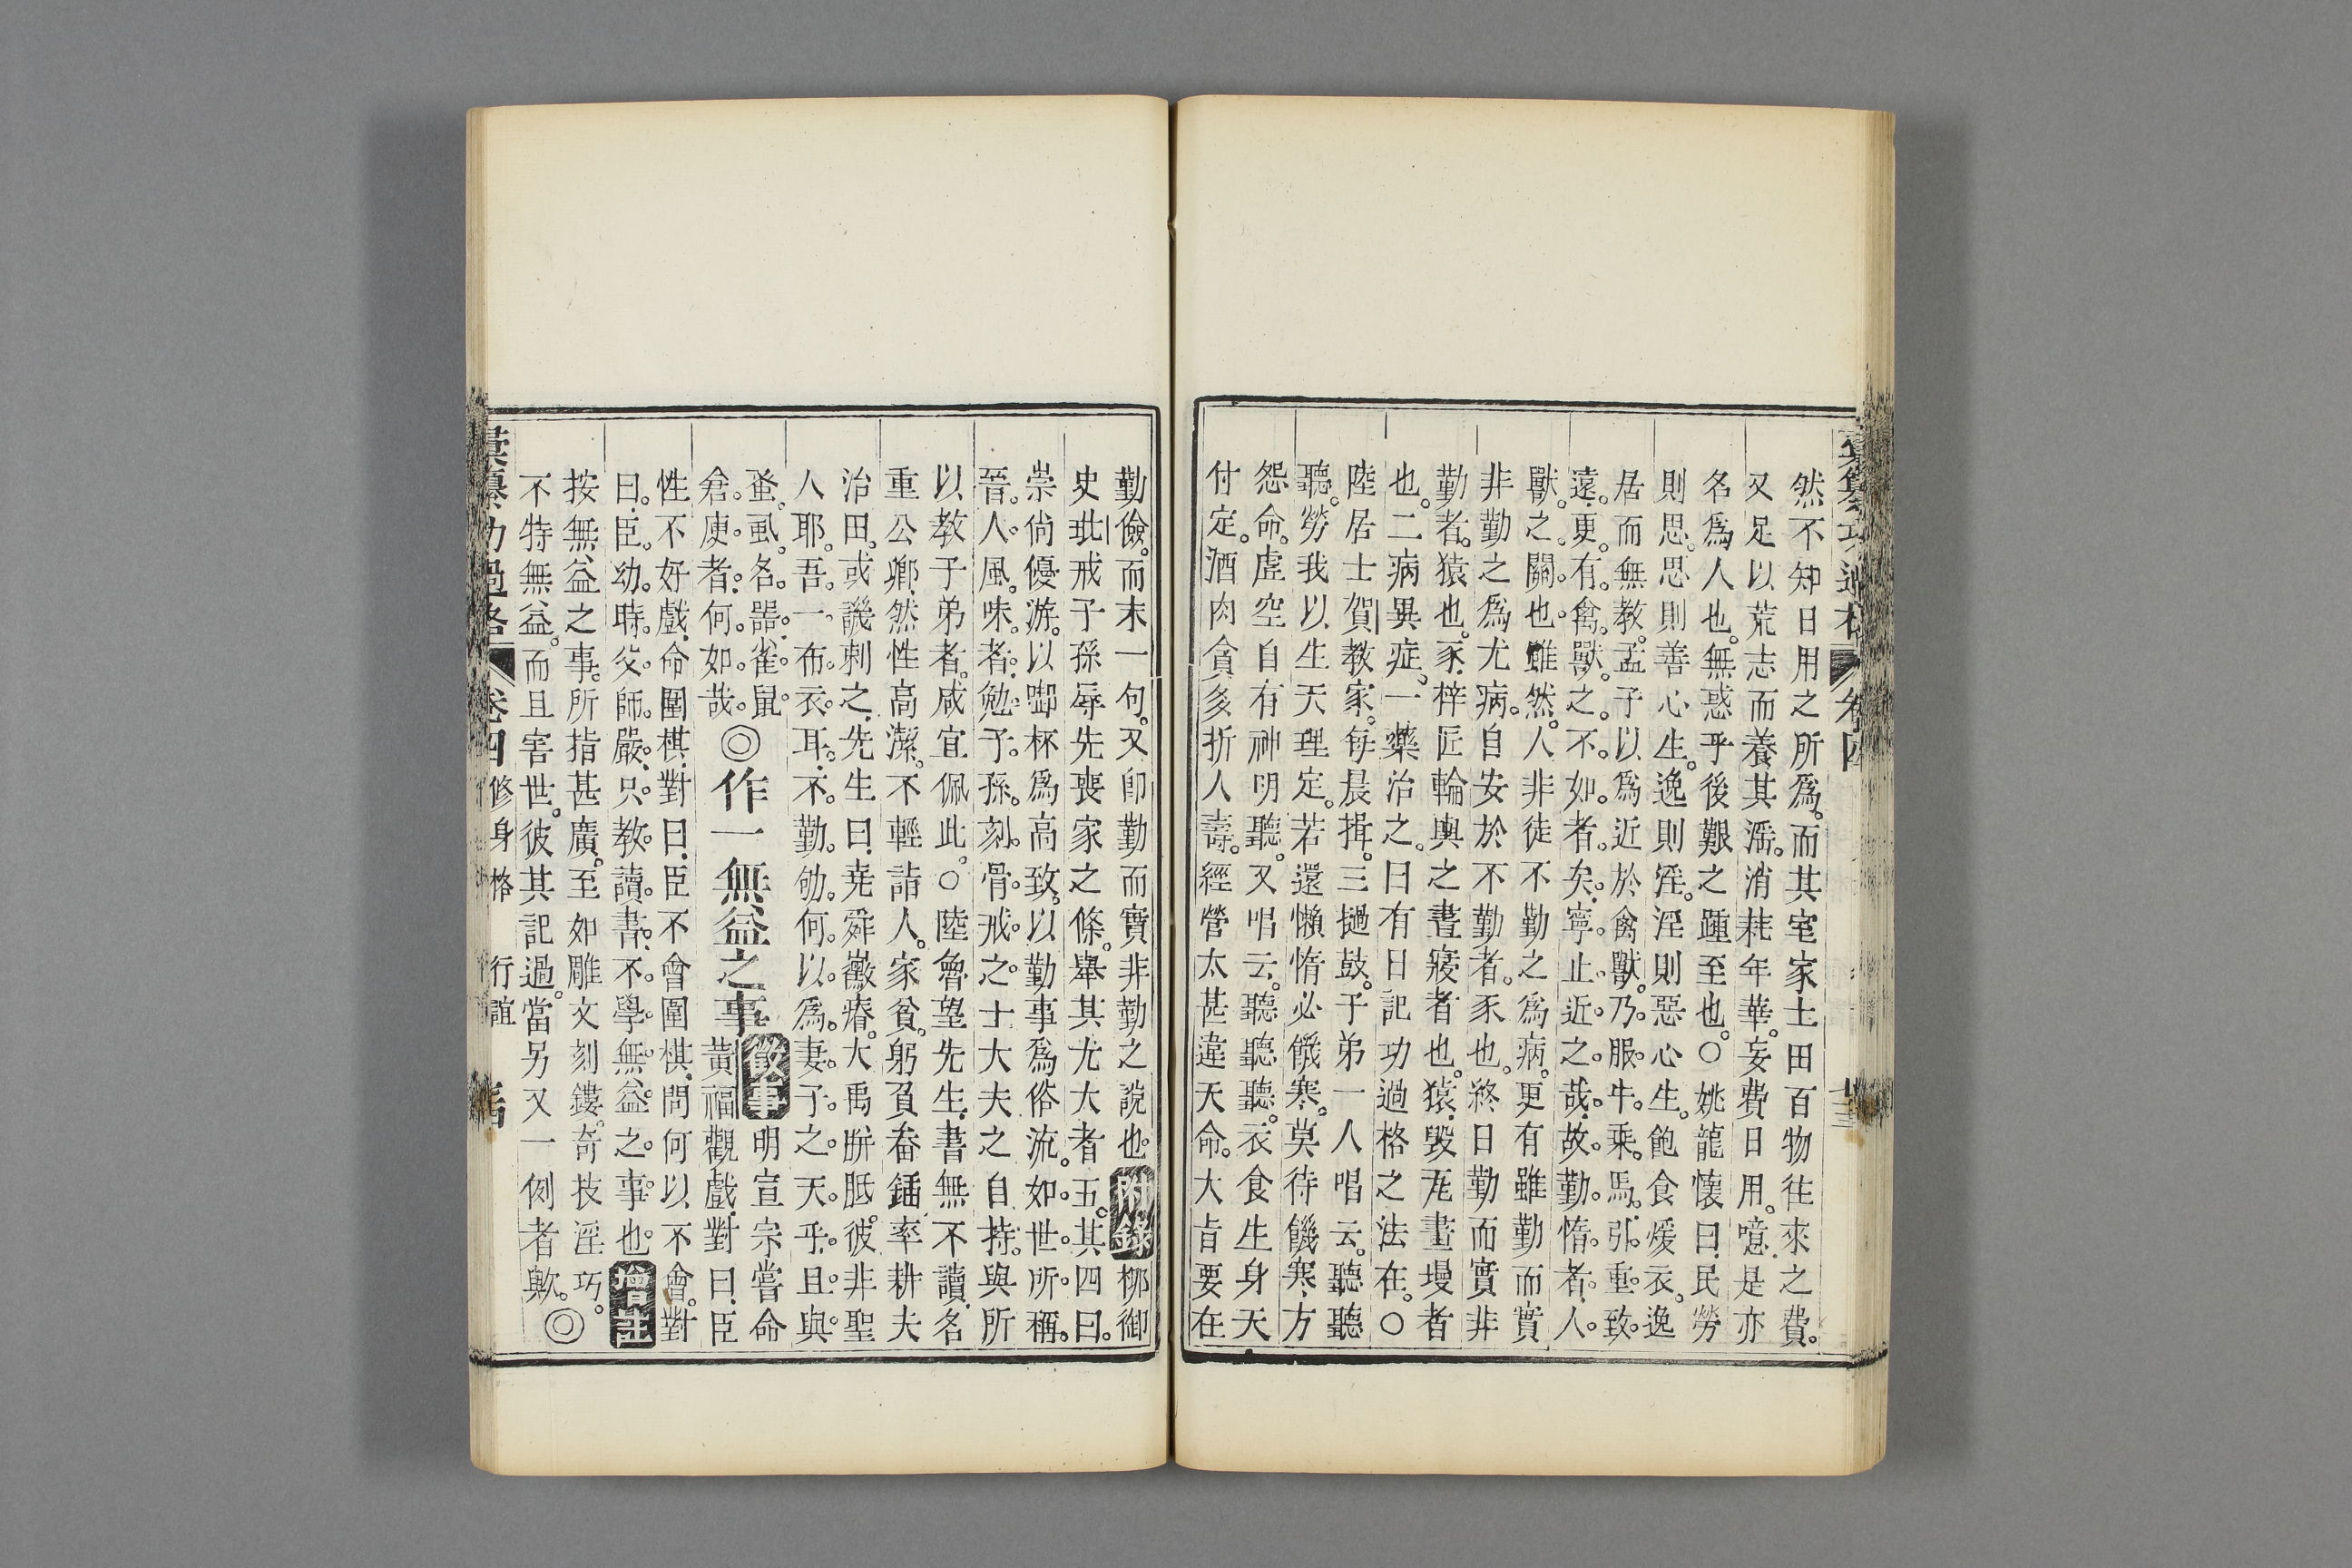 彙纂功過格 卷四 十三
然不知日用之所為。而其室家土田百物往來之費。
又足以荒志而養其淫。消耗年華。妄費日用。噫。是亦
名為人也。無惑乎後艱之踵至也。○姚龍懷曰。民勞
則思。思則善心生。逸則淫。淫則惡心生。飽食煖衣。逸
居而無教。孟子以為近於禽獸。乃服牛。乘馬。引重。致
遠。更有禽獸之不如者矣。寧止近之哉。故勤惰者。人
獸之關也。雖然。人非徒不勤之為病。更有雖勤而實
非勤之為尤病。自安於不勤者。豕也。終日勤而實非
勤者。猿也。豕梓匠輪輿之晝寢者也。猿毀瓦畫墁者
也。二病異症。一藥治之。曰有日記功過格之法在。○
陸居士賀教家。每晨揖。三撾鼓。子弟一人唱云。聽聽
聽。勞我以生天理定。若還懶惰必饑寒。莫待饑寒方
怨命。虛空自有神明聽。又唱云。聽聽聽。衣食生身天
付定。酒肉貪多折人壽。經營太甚違天命。大旨要在
勤儉。而末一句。又卽勤而實非勤之說也。附錄 柳御
史玭戒子孫辱先喪家之條。舉其尤大者五。其四曰。
崇尚優游。以啣杯為高致。以勤事為俗流。如世所稱。
晉人風味者。勉子孫。刻骨戒之。士大夫之自持。與所
以教子弟者。咸宜佩此。○陸魯望先生。書無不讀。名
重公卿。然性高潔。不輕詣人。家貧。躬負畚鍤率耕夫
治田。或譏刺之。先生曰。堯舜黴瘠。大禹胼胝。彼非聖
人耶。吾一布衣耳。不勤劬。何以為妻子之天乎。且與
蚤虱名器。雀鼠
倉庾者。何如哉。◎作一無益之事 徵事 明宣宗嘗命
黃福觀戲。對曰。臣
性不好戲。命圍棋。對曰。臣不會圍棋。問何以不會。對
曰。臣幼時。父師嚴。只教讀書。不學無益之事也。增註
按無益之事。所指甚廣。至如雕文刻鏤。奇技淫巧。
不特無益。而且害世。彼其記過。當另又一例者歟。◎
彙纂功過格 卷四 修身格 行誼